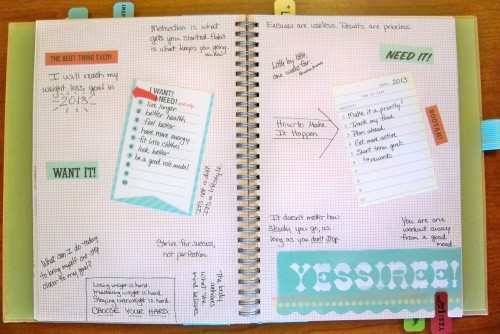 Motivation is what
gets you started. Habit
is what keeps you going.
THE BEST THING EVER!
I will reach my
weight loss goal in
2013
I WANT!
NEED!
live longer
better health
feel better
have more energy
fit into clothes
look better
be a good role model
WANT IT!
It's not a diet.
It's a lifestyle.
What can I do today
to bring myself one step
closer to my goal?
Strive for success,
not perfection.
Losing weight is hard.
Maintaining weight is hard.
Staying overweight is hard.
CHOOSE YOUR HARD.
The body
achieves
what the
mind believes.
Excuses are useless. Results are priceless.
Little by little
one walks far.
NEED IT!
2013
TOP 10 LIST
1 Make it a priority!
2 Track my food
3 Plan ahead
4 Get more active
5 Short term goals
& rewards
BOOYAH!
How to Make
It Happen
It doesn't matter how
slowly you go, as
long as you don't stop.
You are one
workout away
from a good
mood.
YESSIREE!